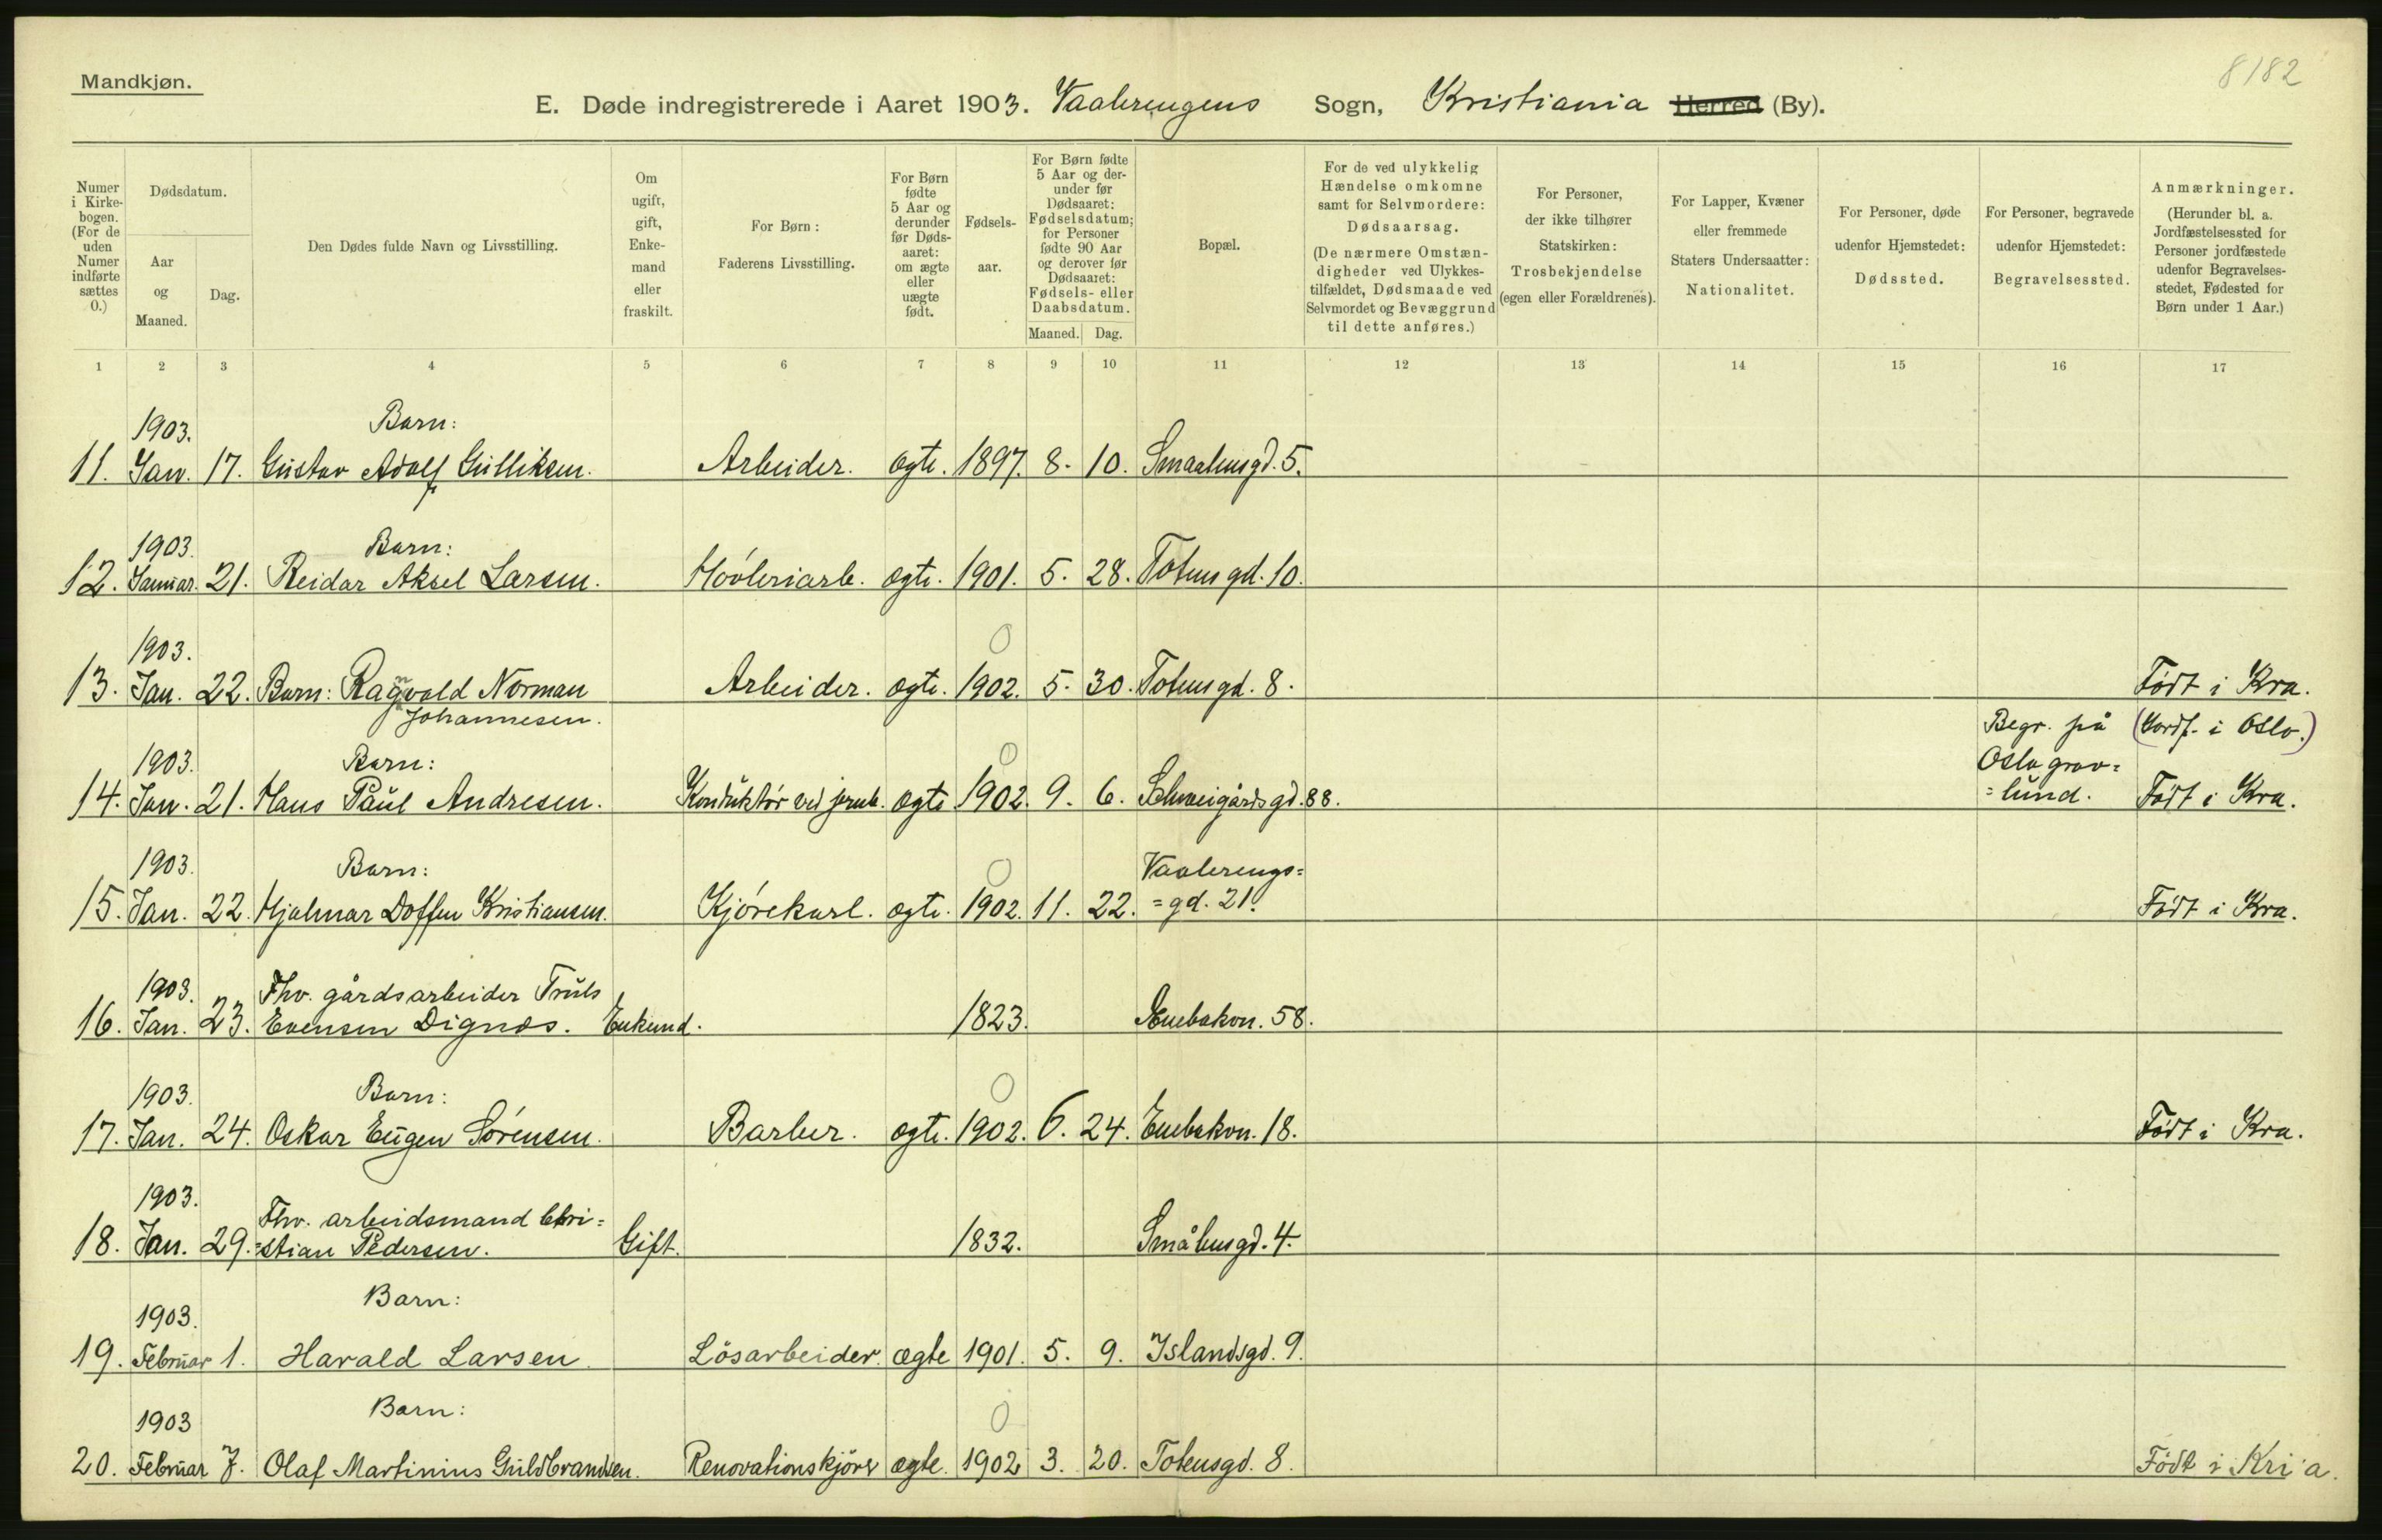 8182
Mandkjøn.
E. Døde indregistrerede i Aaret 1903. Vaalerengens Sogn, Kristiania Herred (By).
Numer i Kirkebogen. (For de uden Numer indførte sættes 0.)
Dødsdatum.
Aar og Maaned.
Dag.
Den Dødes fulde Navn og Livsstilling.
Om ugift, gift, Enkemand eller fraskilt.
For Børn: Faderens Livsstilling.
For Børn fødte 5 Aar og derunder før Dødsaaret: om ægte eller uægte født.
Fødselsaar.
For Børn fødte 5 Aar og derunder før Dødsaaret: Fødselsdatum; for Personer fødte 90 Aar og derover før Dødsaaret: Fødsels- eller Daabsdatum.
Maaned. Dag.
Bopæl.
For de ved ulykkelig Hændelse omkomne samt for Selvmordere: Dødsaarsag. (De nærmere Omstændigheder ved Ulykkestilfældet, Dødsmaade ved Selvmordet og Bevæggrund til dette anføres.)
For Personer, der ikke tilhører Statskirken: Trosbekjendelse (egen eller Forældrenes).
For Lapper, Kvæner eller fremmede Staters Undersaatter: Nationalitet.
For Personer, døde udenfor Hjemstedet: Dødssted.
For Personer, begravede udenfor Hjemstedet: Begravelsessted.
Anmærkninger. (Herunder bl. a. Jordfæstelsessted for Personer jordfæstede udenfor Begravelsesstedet, Fødested for Børn under 1 Aar.)
1 2 3 4 5 6 7 8 9 10 11 12 13 14 15 16 17
1903. Barn:
11. Jan. 17. Gustav Adolf Gulliksen. Arbeider. ægte. 1897. 8. 10. Smaalensgd. 5.
1903. Barn:
12. Januar. 21. Reidar Aksel Larsen. Høvleriarb. ægte. 1901. 5. 28. Totensgd. 10.
1903. 0
13. Jan. 22. Barn: Ragnvald Norman Arbeider. ægte. 1902. 5. 30. Totensgd. 8. Født i Kra.
Johannesen. Begr. på (Jordf. i Oslo.)
1903. Barn: 0 Oslo grav=
14. Jan. 21. Hans Paul Andresen. Konduktør ved jernb. ægte 1902. 9. 6. Schweigårdsgd. 88. =lund. Født i Kra.
1903. Barn: 0 Vaalerengs=
15. Jan. 22. Hjalmar Doffen Kristiansen. Kjørekarl. ægte. 1902. 11. 22. =gd. 21. Født i Kra.
1903. Fhv. gårdsarbeider Truls
16. Jan. 23. Evensen Dignæs. Enkemd. 1823. Enebakvn. 58.
1903. Barn: 0
17. Jan. 24. Oskar Eugen Sørensen. Barber. ægte. 1902. 6. 24. Enebakvn. 18. Født i Kra.
1903. Fhv. arbeidsmand Chri=
18. Jan. 29. =stian Pedersen. Gift. 1832. Smålensgd. 4.
1903. Barn:
19. Februar 1. Harald Larsen. Løsarbeider. ægte 1901. 5. 9. Islandsgd. 9.
1903 Barn: 0
20. Februar 7. Olaf Martinius Guldbrandsen. Renovationskjører ægte. 1902 3. 20. Totensgd. 8. Født i Kri'a.